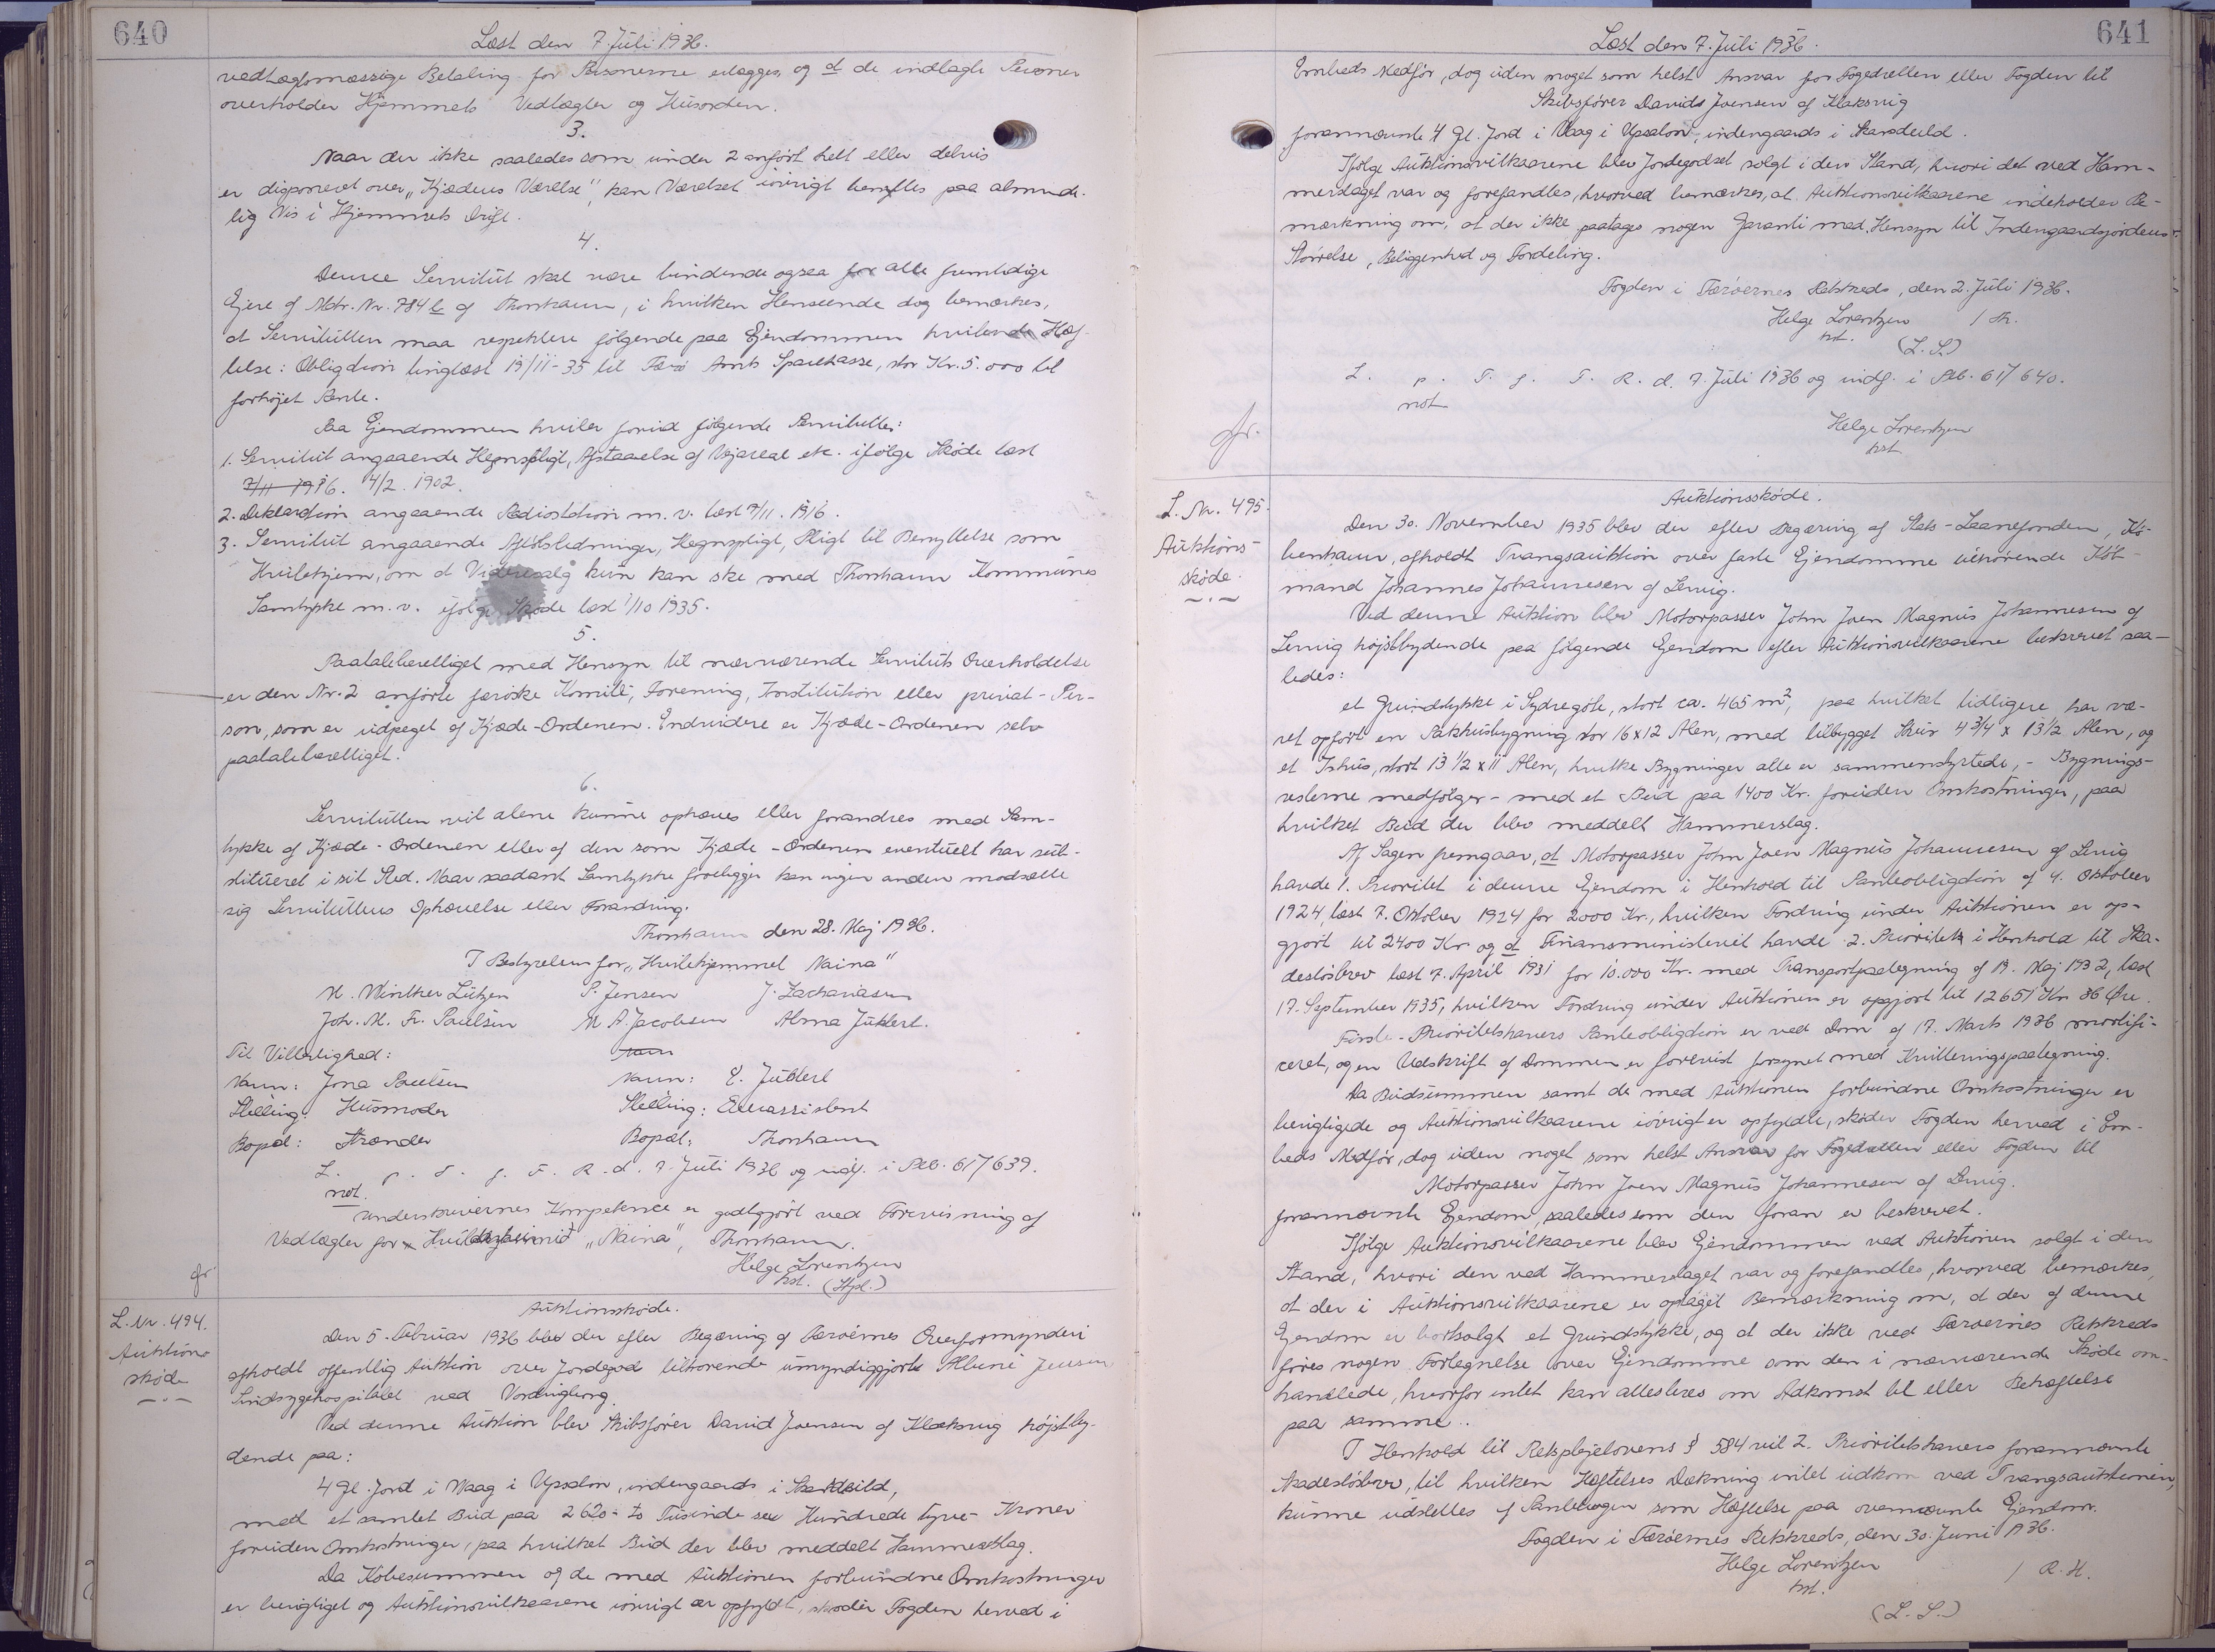 640
Læst den 7. Juli 1936.
vedtægtsmæssige Betaling for Personerne erlægges, og at de indlagte Personer
overholder Hjemmets Vedtægter og Husorden.
3.
Naar der ikke saaledes som under 2 anført helt eller delvis
er disponeret over „Kjædens Værelse", kan Værelset iøvrigt benyttes paa alminde-
lig Vis i Hjemmets Drift.
4.
Denne Servitut skal være bindende ogsaa for alle fremtidige
Ejere af Matr. Nr. 784 b af Thorshavn, i hvilken Henseende dog bemærkes,
at Servitutten maa respektere følgende paa Ejendommen hvilende Hæf-
telse: Obligation tinglæst 19/11-35 til Færø Amts Sparekasse, stor Kr. 5.000 til
forhøjet Rente.
Paa Ejendommen hviler forud følgende Servitutter:
1. Servitut angaaende Hegnspligt, Afstaaelse af Vejareal etc. ifølge Skøde læst
7/11 1916. 4/2. 1902.
2. Deklaration angaaende Radiostation m. v. læst 7/11. 1916.
3. Servitut angaaende Afløbsledninger, Hegnspligt, Pligt til Benyttelse som
Hvilehjem, om at Videresalg kun kan ske med Thorshavn Kommunes
Samtykke m. v. ifølge Skøde læst 1/10 1935.
5.
Paataleberettiget med Hensyn til nærværende Servituts Overholdelse
er den Nr. 2 anførte færøske Komité, Forening, Institution eller privat-Per-
son, som er udpeget af Kjæde-Ordenen. Endvidere er Kjæde-Ordenen selv
paataleberettiget.
6.
Servitutten vil alene kunne ophæves eller forandres med Sam-
tykke af Kjæde-Ordenen eller af den som Kjæde-Ordenen eventuelt har sub-
stitueret i sit Sted. Naar saadant Samtykke foreligger kan ingen anden modsætte
sig Servituttens Ophævelse eller Forandring.
Thorshavn den 28. Maj 1936.
I Bestyrelsen for „Hvilehjemmet Naina"
M. Winther Lützen P. Jensen J. Zachariasen
Joh. M. Fr. Poulsen M A. Jacobsen Alma Juhlert.
Til Vitterlighed:
Navn: Jona Poulsen Navn: E. Juhlert
Stilling: Husmoder Stilling: Assistent
Bopæl: Strænder Bopæl: Thorshavn
L. p. T. f. F. R. d. 7. Juli 1936 og indf. i Skb. 617/639.
not.
Underskrivernes Kompetence er godtgjort ved Forevisning af
Vedtægter for „Naina", Thorshavn.
Helge Lorentzen
kst. (Stpl.)
L. Nr. 494.
Auktions-
skøde
Auktionsskøde.
Den 5. Februar 1936 blev der efter Begæring af Færøernes Overformynderi
afholdt offentlig Auktion over Jordegods tilhørende umyndiggjorte Albine Jensen
Sindssygehospitalet ved Vordingborg.
Ved denne Auktion blev Skibsfører David Joensen af Klaksvig højstby-
dende paa:
4 Gl. Jord i Vaag i Upsalon, indengaards i Skardsild,
med et samlet Bud paa 2620 - to Tusinde sex Hundrede tyve - Kroner
foruden Omkostninger, paa hvilket Bud der blev meddelt Hammerslag.
Da Købesummen og de med Auktionen forbundne Omkostninger
er berigtiget og Auktionsvilkaarene iøvrigt er opfyldt, skøder Fogden herved i
641
Læst den 7. Juli 1936.
Embeds Medfør, dog uden noget som helst Ansvar for Fogedretten eller Fogden til
Skibsfører Davids Joensen af Klaksvig
forannævnte 4 Gl. Jord i Vaag i Upsalon, indengaards i Skardsild.
Ifølge Auktionsvilkaarene blev Jordegodset solgt i den Stand, hvori det ved Ham-
merslaget var og forefandtes, hvorved bemærkes, at Auktionsvilkaarene indeholder Be-
mærkning om, at der ikke paatages nogen Garanti med Hensyn til Indengaardsjordens
Størrelse, Beliggenhed og Fordeling.
Fogden i Færøernes Retskreds, den 2. Juli 1936.
Helge Lorentzen
kst. (L. S.)
L. p. T. f. F. R. d. 7. Juli 1936 og indf. i Skb. 617/640.
not
Helge Lorentzen
kst.
L. Nr. 495.
Auktions-
skøde.
Auktionsskøde.
Den 30. November 1935 blev der efter Begæring af Stats-Laanefonden, Kø-
benhavn, afholdt Tvangsauktion over faste Ejendomme tilhørende Køb-
mand Johannes Johannesen af Lervig.
Ved denne Auktion blev Motorpasser John Joen Magnus Johannesen af
Lervig højstbydende paa følgende Ejendom efter Auktionsvilkaarene beskrevet saa-
ledes:
et Grundstykke i Sydregøte, stort ca. 465 m², paa hvilket tidligere har væ-
ret opført en Pakhusbygning stor 16 x 12 Alen, med tilbygget Skur 4 3/4 x 13 1/2 Alen, og
et Ishus, stort 13 1/2 x 11 Alen, hvilke Bygninger alle er sammenstyrtede, - Bygnings-
resterne medfølger - med et Bud paa 1400 Kr. foruden Omkostninger, paa
hvilket Bud der blev meddelt Hammerslag.
Af Sagen fremgaar, at Motorpasser John Joen Magnus Johannesen af Lervig
havde 1. Prioritet i denne Ejendom i Henhold til Panteobligation af 4. Oktober
1924, læst 7. Oktober 1924 for 2000 Kr., hvilken Fordring under Auktionen er op-
gjort til 2400 Kr. og at Finansministeriet havde 2. Prioritet i Henhold til Ska-
desløsbrev læst 7. April 1931 for 10.000 Kr. med Transportpaategning af 19. Maj 1932, læst
17. September 1935, hvilken Fordring under Auktionen er opgjort til 12651 Kr. 86 Øre.
Første-Prioritetshavers Panteobligation er ved Dom af 17. Marts 1936 mortifi-
ceret, og en Udskrift af Dommen er forevist forsynet med Kvitteringspaategning.
Da Budsummen samt de med Auktionen forbundne Omkostninger er
berigtigede og Auktionsvilkaarene iøvrigt er opfyldte, skøder Fogden herved i Em-
beds Medfør, dog uden noget som helst Ansvar for Fogedretten eller Fogden til
Motorpasser John Joen Magnus Johannesen af Lervig.
forannævnte Ejendom, saaledes som den foran er beskrevet.
Ifølge Auktionsvilkaarene blev Ejendommen ved Auktionen solgt i den
Stand, hvori den ved Hammerslaget var og forefandtes, hvorved bemærkes,
at der i Auktionsvilkaarene er optaget Bemærkning om, at der af denne
Ejendom er bortsolgt et Grundstykke, og at der ikke ved Færøernes Retskreds
føres nogen Fortegnelse over Ejendomme som den i nærværende Skøde om-
handlede, hvorfor intet kan attesteres om Adkomst til eller Behæftelse
paa samme.
I Henhold til Retsplejelovens § 584 vil 2. Prioritetshavers forannævnte
Skadesløsbrev, til hvilken Hæftelses Dækning intet udkom ved Tvangsauktionen,
kunne udslettes af Pantebogen som Hæftelse paa ovennævnte Ejendom.
Fogden i Færøernes Retskreds, den 30. Juni 1936.
Helge Lorentzen
kst. / R. H.
(L. S.)